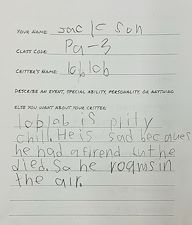 YOUR NAME: Jackson
CLASS CODE: Pa-3
CRITTER'S NAME: loblob
DESCRIBE AN EVENT, SPECIAL ABILITY, PERSONALITY, OR ANYTHING
ELSE YOU WANT ABOUT YOUR CRITTER.
loblob is prity
chill. He is sad becaues
he had a firend but he
died. So he roams in
the air.